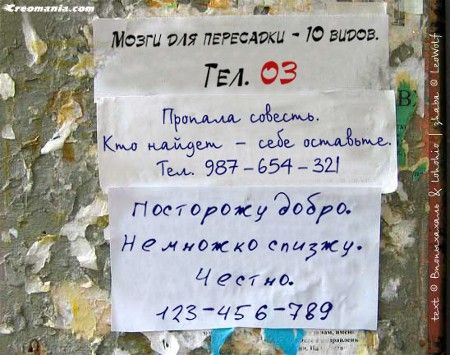 Creomania.com
Мозги для пересадки - 10 видов.
Тел. 03
Пропала совесть.
Кто найдет - себе оставьте.
Тел. 987-654-321
Посторожу добро.
Немножко спизжу.
Честно.
123-456-789
text © Впопыхахаль & lohohio | zhaba © LeoWolf